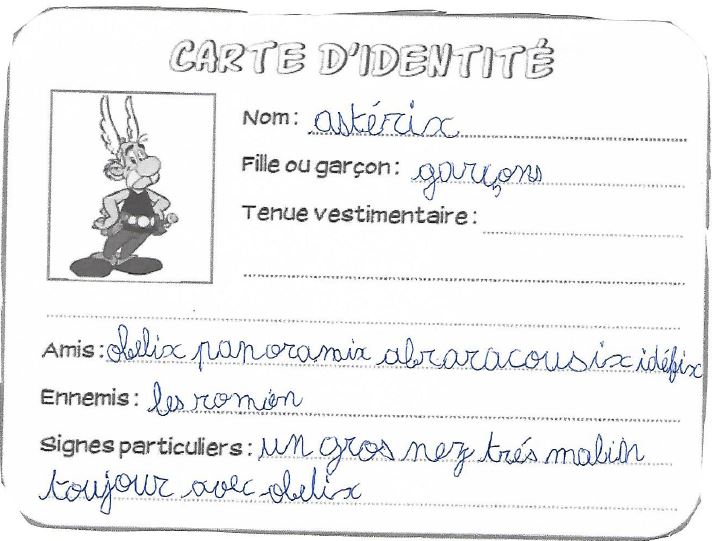 CARTE D'IDENTITÉ
Nom : astérix
Fille ou garçon : garçons
Tenue vestimentaire :
Amis : obelix panoramix abraracousix idéfix
Ennemis : les romien
Signes particuliers : un gros nez trés malin
toujour avec obelix